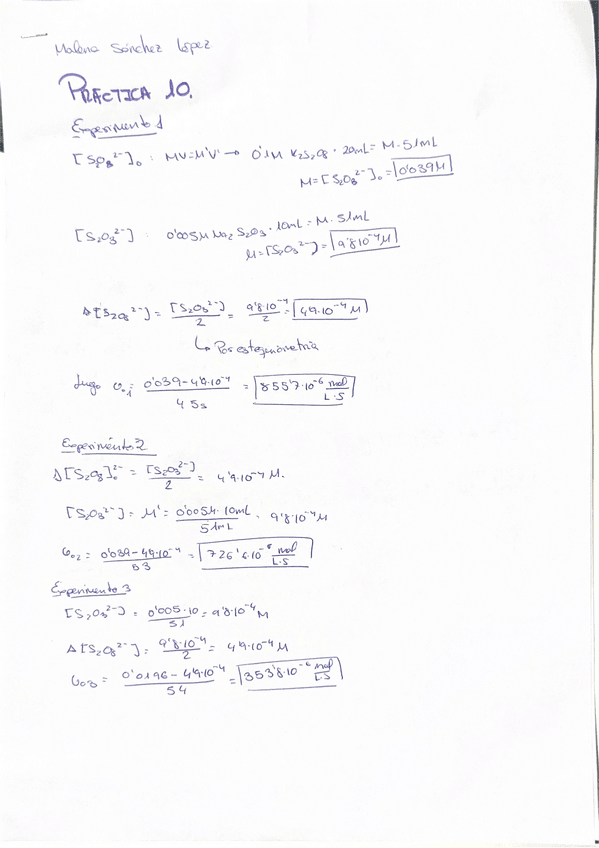 Malena Sánchez López
PRÁCTICA 10.
Experimento 1
[S2O8^2-]o : MV=M'V' → 0'1M K2S2O8 · 20mL = M · 51mL
M=[S2O8^2-]o = 0'039M
[S2O3^2-] : 0'005M Na2S2O3 · 10mL = M · 51mL
M=[S2O3^2-] = 9'8·10^-4 M
Δ[S2O8^2-] = [S2O3^2-]/2 = 9'8·10^-4/2 = 4'9·10^-4 M
↳ Por estequiometría
Luego vo1 = 0'039-4'9·10^-4/45s = 855'7·10^-6 mol/L·s
Experimento 2
Δ[S2O8]o^2- = [S2O3^2-]/2 = 4'9·10^-4 M.
[S2O3^2-] = M' = 0'005M · 10mL/51mL = 9'8·10^-4 M
vo2 = 0'039-4'9·10^-4/53 = 726'6·10^-6 mol/L·s
Experimento 3
[S2O3^2-] = 0'005·10/51 = 9'8·10^-4 M
Δ[S2O8^2-] = 9'8·10^-4/2 = 4'9·10^-4 M
vo3 = 0'0196-4'9·10^-4/54 = 353'8·10^-6 mol/L·s